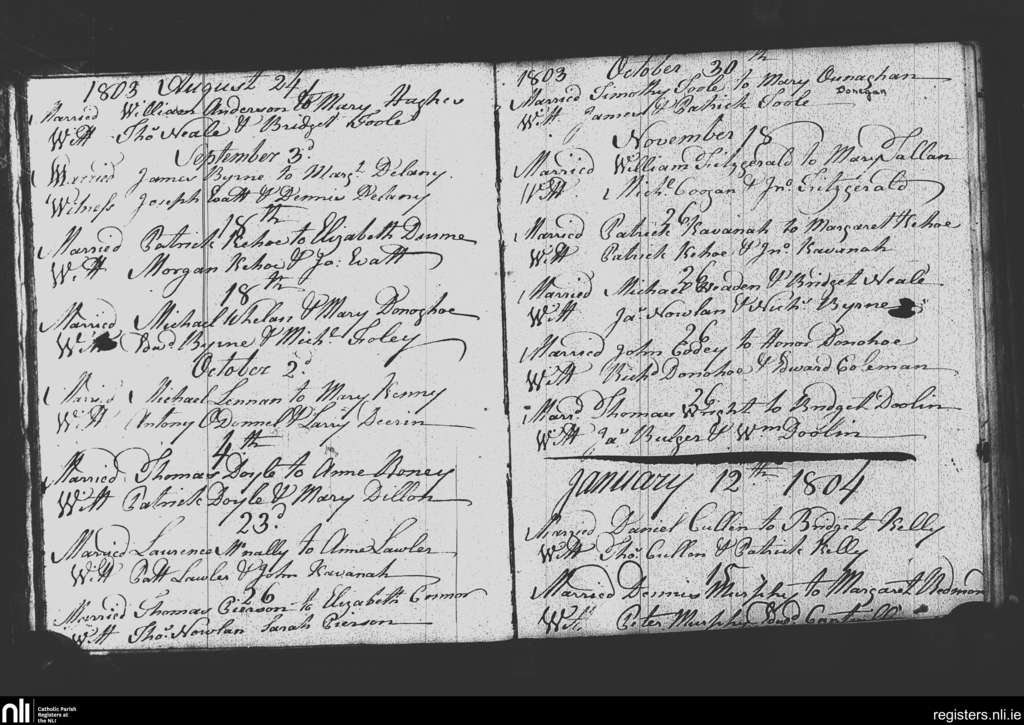 1803 August 24th
Married William Anderson to Mary Hughes
Witt Thos Neale & Bridget Toole
September 3d
Married James Byrne to Margt Delany
Witness Joseph Watt & Dennis Delany
18th
Married Patrick Kehoe to Elizabeth Dunne
Witt Morgan Kehoe & Jos: Watt
18th
Married Michael Whelan & Mary Donoghoe
Witt Edwd Byrne & Michl Foley
October 2d
Married Michael Lennan to Mary Kenny
Witt Antony O'Donnel & Larry
4th
Married Thomas Doyle to Anne Roney
Witt Patrick Doyle & Mary Dillon
23d
Married Laurence McNally to Anne Lawler
Witt Patt Lawler & John Kavanah
26
Married Thomas Pierson to Elizabeth Connor
Witt Thos. Nowlan Sarah Pierson
1803 October 30th
Married Timothy Toole to Mary Dunaghan
Donegan
Witt James & Patrick Toole
November 18
Married William Fitzgerald to Mary Tallan
Witt Michl Coogan & Jno. Fitzgerald
26
Married Patrick Kavanah to Margaret Kehoe
Witt Patrick Kehoe & Jno. Kavanah
26
Married Michael & Bridget Neale
Witt Jas Nowlan & Nichs Byrne
26
Married John Codey to Honor Donohoe
Witt Richd Donohoe & Edward Coleman
26
Marrd Thomas Wright to Bridget Doolin
Witt Jas Bulger & Wm Doolin
January 12th 1804
Married Daniel Cullen to Bridget Kelly
Witt Thos Cullen & Patrick Kelly
15
Married Dennis Murphy to Margaret Redmon
Witt Peter Murphy
nli Catholic Parish
Registers at
the NLI
registers.nli.ie